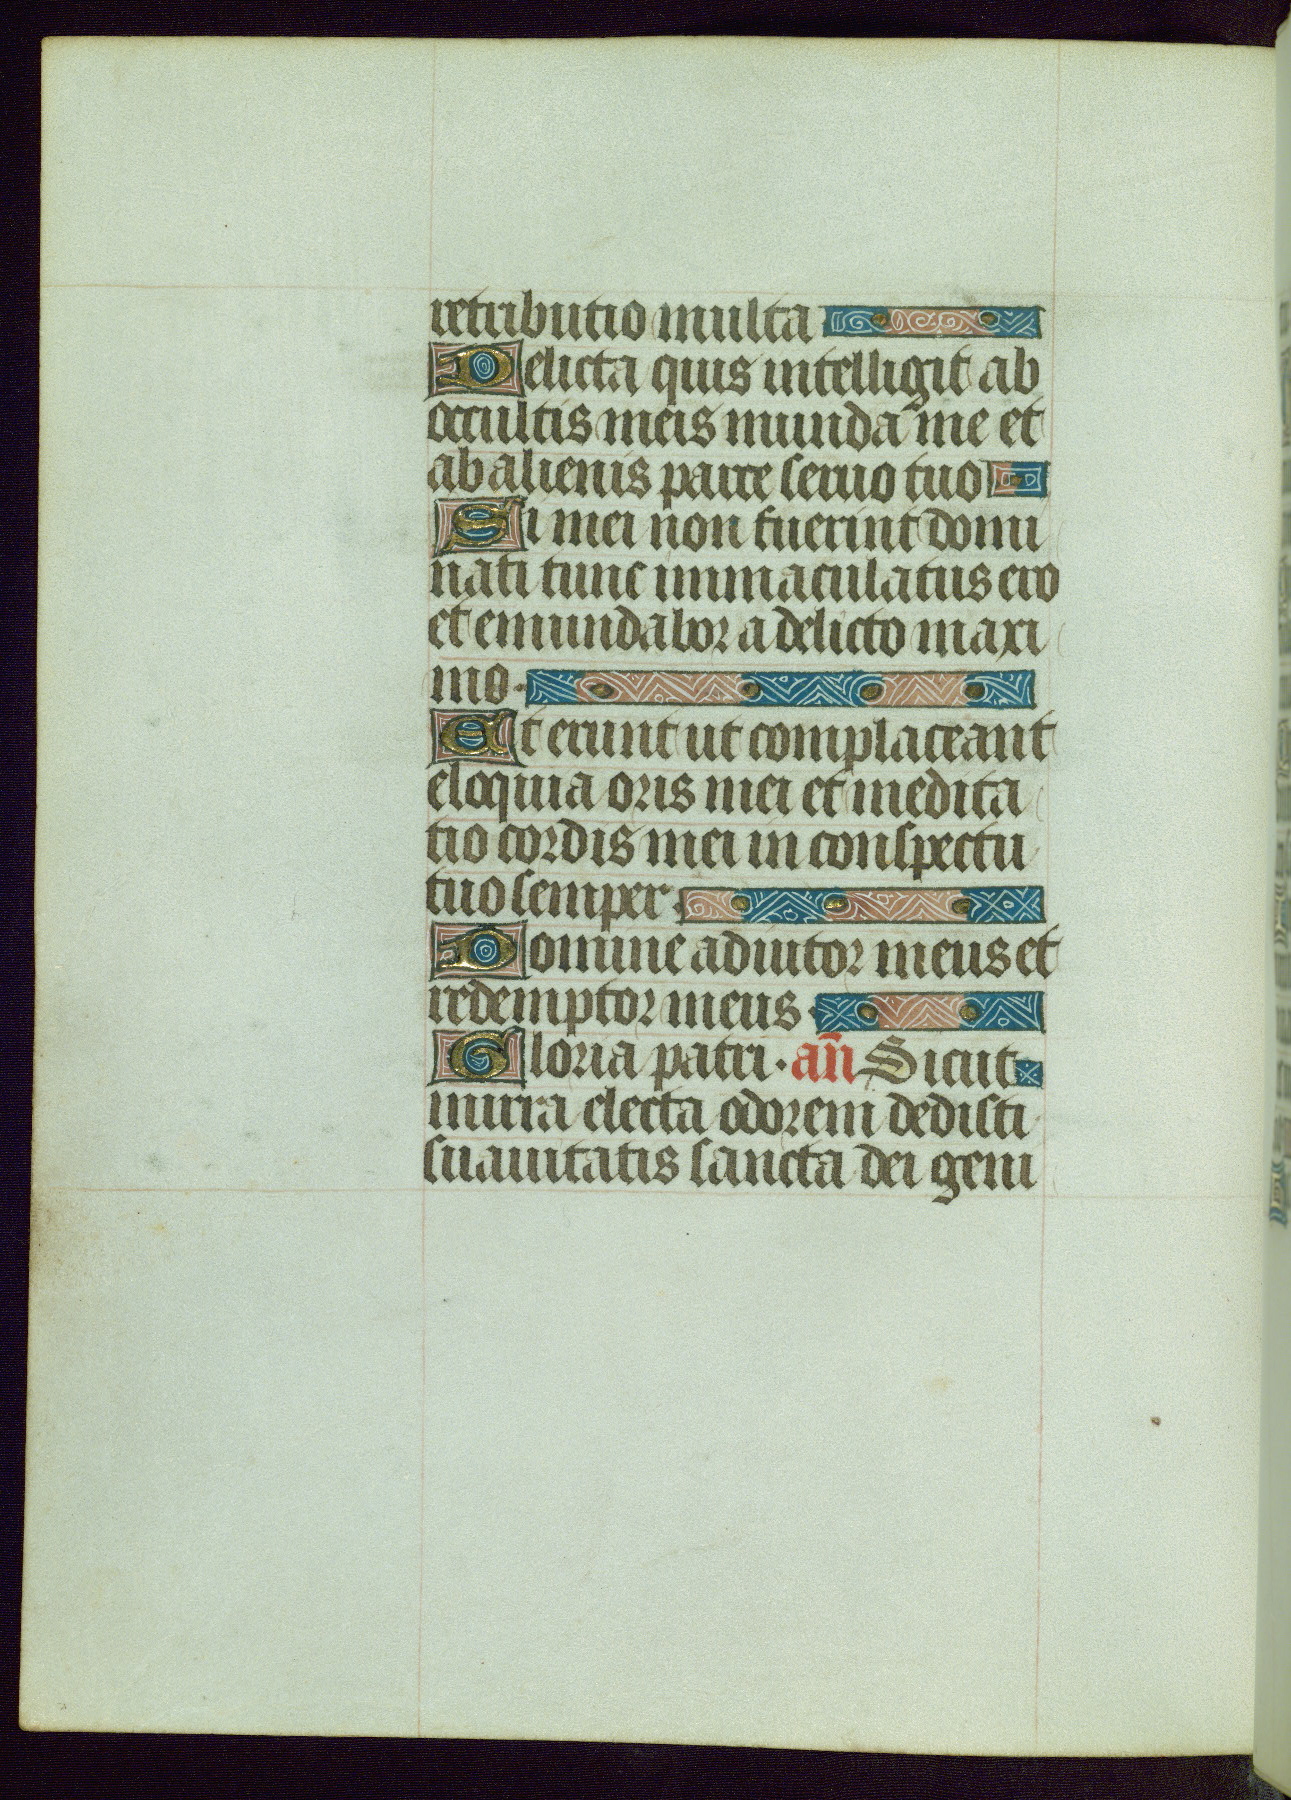 retributio multa
Delicta quis intelligit ab
occultis meis munda me et
ab alienis parce seruo tuo
Si mei non fuerint domi
nati tunc immaculatus ero
et emundabor a delicto maxi
mo.
Et erunt ut complaceant
eloquia oris mei et medita
tio cordis mei in conspectu
tuo semper.
Domine adiutor meus et
redemptor meus.
Gloria patri. an̄ Sicut
mirra electa odorem dedisti
suauitatis sancta dei geni